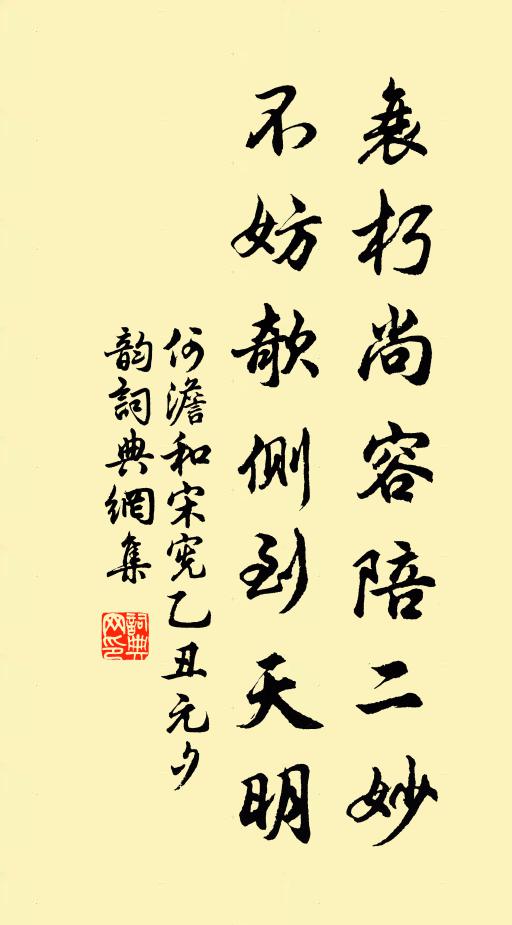 衰朽尚容陪二妙
不妨欹側到天明
何澹和宋宪乙丑元夕
韵詞典網集
詞典
网印